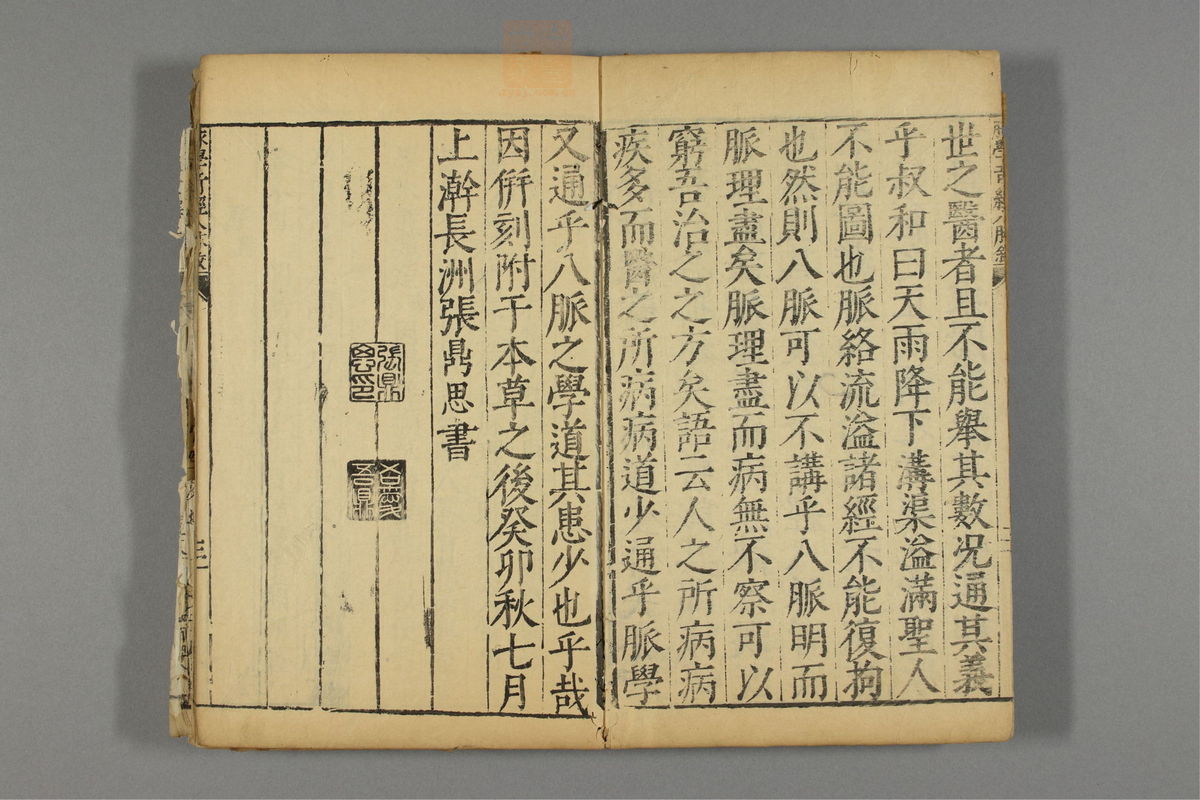 世之醫者且不能舉其數况通其義
乎叔和曰天雨降下溝渠溢滿聖人
不能圖也脈絡流溢諸經不能復拘
也然則八脈可以不講乎八脈明而
脈理盡矣脈理盡而病無不察可以
窮吾治之之方矣語云人之所病病
疾多而醫之所病病道少通乎脈學
又通乎八脈之學道其患少也乎哉
因併刻附于本草之後癸卯秋七月
上澣長洲張鼎思書
張鼎
思印